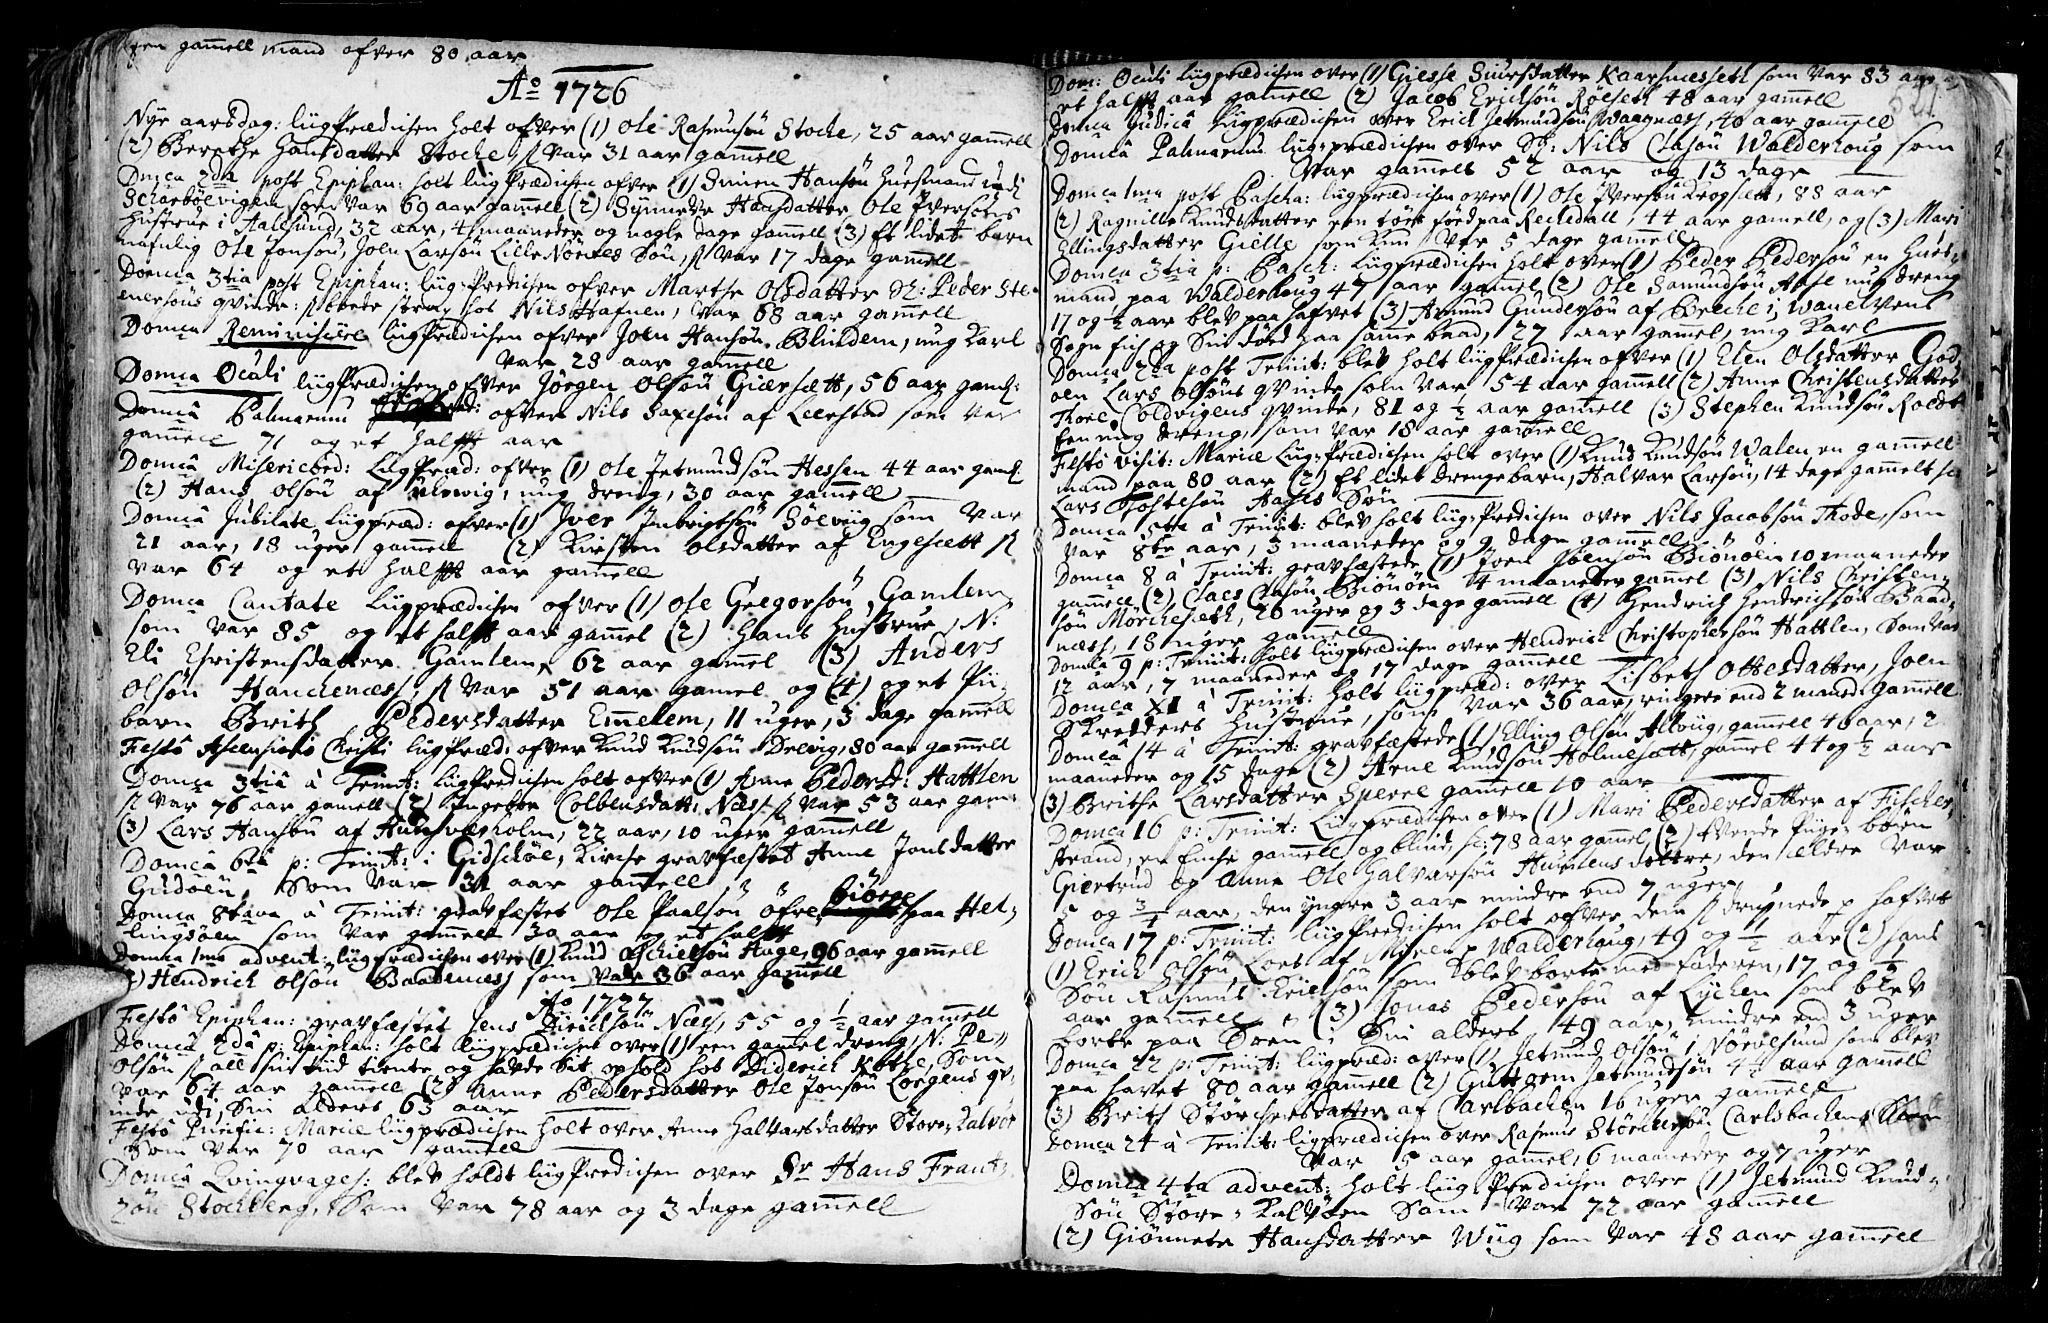 en gamell mand ofver 80 aar
Aº 1726
Nÿe aarsdag: liigPrædichen holt ofver (1) Ole Rasmusøn Stoche, 25 aar gamell
(2) Berethe Hansdatter Stoche, var 31 aar gamell
Dmca 2da post Epiphan: holt liigPrædichen ofver (1) Simen Hansøn Huusmand udi
Scharbøevigen som var 69 aar gamell (2) Synneve Hansdatter Ole Iversøns
Hustrue i Aalesund, 32 aar, 4 maaneder og nogle dage gamell (3) Et lidet barn
nafnlig Ole Jonsøn, Joen Larsøn Lille Nørvæs Søn, var 17 dage gamell
Domca 3tia post Epiphan: liig-Predichen ofver Marthe Olsdatter Sl: Peder Ste-
enersøns qvinde: hos Nils Hafnen, var 68 aar gamell
Domca Reminiscere liigPrædichen ofver Joen Hansøn Blindem, ung karl
var 23 aar gamell
Domca Oculi liigPrædichen ofver Jørgen Olsøn Giersett, 56 aar gaml:
Domcâ Palmarum ofver Nils Saxesøn af Leerstad som var
gamell 71 og et halft aar
Domcâ Misericord: LiigPræd: ofver (1) Ole Jetmundsøn Hessen 44 aar gaml
(2) Hans Olsøn af Ulevig, ung dreng, 30 aar gamell
Domcâ Jubilate Liigpræd: ofver (1) Iver Inbrigtsøn Søeviig som var
21 aar, 18 uger gamell (2) Kirsten Olsdatter af Engesett
var 64 og et halft aar gamell
Domca Cantate Liigprædichen ofver (1) Ole Gregorsøn Gamlem
som var 85 og et halft aar gamel (2) Hans Hustrue, N:
Eli Christensdatter Gamlem 62 aar gamel (3) Anders
Olsøn Hanchenæss, var 51 aar gamel og (4) og et Pii-
barn Brith Pedersdatter Emelem, 11 uger, 3 dage gamell
Festô Ascensionis Christi liigPræd: ofver Knud Knudsøn Drevig, 80 aar gamell
Domca 3tiâ à Trinit: LiigPredichen holt ofver (1) Anne Pedersd: Hattlen
var 76 aar gamell (2) Ingebor Colbensdatt: Næss var 53 aar gam:
(3) Lars Hansøn af, 22 aar, 10 uger gamell
Domcâ 6ta p: Trinit: i Gidschøe, Kirche gravfæstet Anne Jonsdatter
Gudøen, som var 31 aar gamell
Domca 8tava à Trinit: gravfæstet Ole Paalsøn øfre biørge paa Hel-
lingsøen som var gamell 30 aar og et halft
Domca 1ma advent: liigprædichen over (1) Knud Aschielsøn Hage, 96 aar gamell
(2) Hendrich Olsøn Baadenæss som var 36 aar gamell
Aº 1727
Festô Epiphan: gravfæstet Jens Næss, 55 og ½ aar gamell
Domca 2dâ p: Epiphan: holt liigprædichet over (1) een gamel dreng N: Pe-
Olsøn all sin tiid tiente og hafde sit ophold hos Diderich Kotze, som
var 64 aar gamell (2) Anne Pedersdatter Ole Jonsøn Lorgens qv-
inde udi, Sin alders 63 aar
Festô Purific: Mariæ liigprædichen holt over Anne Halvarsdatter Store-Kalvøe
som var 70 aar gamell
Domcâ Qvinqvages: blev holdt liigPredichen over Sr Hans Frantz-
zøn Stochberg, Som var 78 aar og 3 dage gamell
Dom: Oculi liigprædichen over (1) Giesse Siursdatter Kaarsnesseth som var 83 aar
et halft aar gamell (2) Jacob Erichsøn Røeseth 48 aar gamell
Domca Judicâ liigprædichen over Erich Jetmundsøn Waagnæss, 40 aar gamell
Domcâ Palmarum liig-prædichen over Sr: Nils Clasøn Walderhoug som
var gammel 52 aar og 13 dage
Domca 1ma post Pascha: liigprædichen over (1) Ole Iversøn Kropsett, 88 aar
(2) Ragnille Knudsdatter een paa Rechdall, 44 aar gamell, og (3) Mari
Ellingsdatter Gielle som kun var 5 dage gamell
Domca 3tia p: Pasch: Liigprædichen holt over (1) Peder Pedersøn en Huus-
mand paa Walderhoug 47 aar gamel (2) Ole Samundsøn Aase ung dreng
17 og ½ aar blev paa hafvet (3) Amund Gundersøn af Breche i Wanelvens
Sogn fich og Sin død paa samme baad, 27 aar gammel, ung karl
Domca 2da post Trinit: blev holt liigprædichen ofver (1) Elen Olsdatter God-
øen Lars Olsøns qvinde som var 54 aar gamell (2) Anne Christensdatter
Thore Coldvigens qvinde, 81 og ½ aar gamell (3) Stephen Knudsøn Roldt
een ung dreng, som var 18 aar gamell
Festô visit: Mariæ Liig-Prædichen holt over (1) Knud Knudsøn Walen en gamell
mand paa 80 aar (2) Et lidet drengebarn, Halvar Larsøn, 14 dage gammelt
Lars Tostesøn Aases Søn
Domca 5te à Trinit: blev holt liig-Predichen over Nils Jacobsøn Thode, som
var 8te aar, 3 maaneder og 9 dage gamell
Domca 8 à Trinit: gravfæstede (1) Joen Joensøn Biønøen 10 maaneder
gamell (2) Claes Olsøn Biønøen 4 maaneder gamel (3) Nils Christen-
søn Mørcheseth, 26 uger og 3 dage gamell (4) Hendrich Hendrichsøn Baad-
næss, 18 uger gamell
Domca 9 p: Trinit: holt liigprædichen over Hendrich Christophersøn Hattlen, som var
12 aar, 7 maaneder og 17 dage gamell
Domca XI à Trinit: holt liigpræd: over Lisbeth Ottesdatter, Joen
Skredders Hustrue, som var 36 aar, ringere end 2 maned: gamell
Domca 14 à Trinit: gravfæstede (1) Elling Olsøn Alviig, gamell 46 aar, 2
maaneder og 15 dage (2) Arne Knudsøn Holmesætt, gammel 44 og ½ aar
(3) Brithe Larsdatter Sperre gamell 10 aar
Domca 16 p: Trinit: Liigprædichen over (1) Mari Pedersdatter af Fischer-
strand, en Enche gamell og blind, 78 aar gammel (2) Tvende Piige-børn
Giertrud og Anne Ole Halvarsøn Humlens døttre, den ældre var
5 og ¾ aar, den yngre 3 aar mindre end 7 uger
Domca 17 p: Trinit: liigPredichen holt ofver dem druknede p hafvet
(1) Erich Olsøn Lors af Miren p Walderhaug, 49 og ½ aar (2) hans
Søn Rasmus Erichsøn som blev borte med faderen, 17 og ½
aar gamell, (3) Jonas Pedersøn af Lychen som blev
borte paa Søen i Sin alders 49 aar, mindre end 3 uger
Domca 22 p: Trinit: liigpræd: over (1) Jetmund Olsøn i Nørvesund som blev
paa havet 80 aar gamell (2) Guttorm Jetmundsøn 44 aar gamell
(3) Brith Størchersdatter af Carlbachen 16 uger gamell
Domca 24 à Trinit: liigprædichen over Rasmus Størchersøn Carlsbachen, Som
var 5 aar gamel, 6 maaneder og 7 uger
Domca 4ta advent: holt liig-Predichen over (1) Jetmund Knud-
Søn Store-Kalvøen Som var 72 aar gamell
(2) Giønneta Hansdatter Wiig som var 48 aar gamell